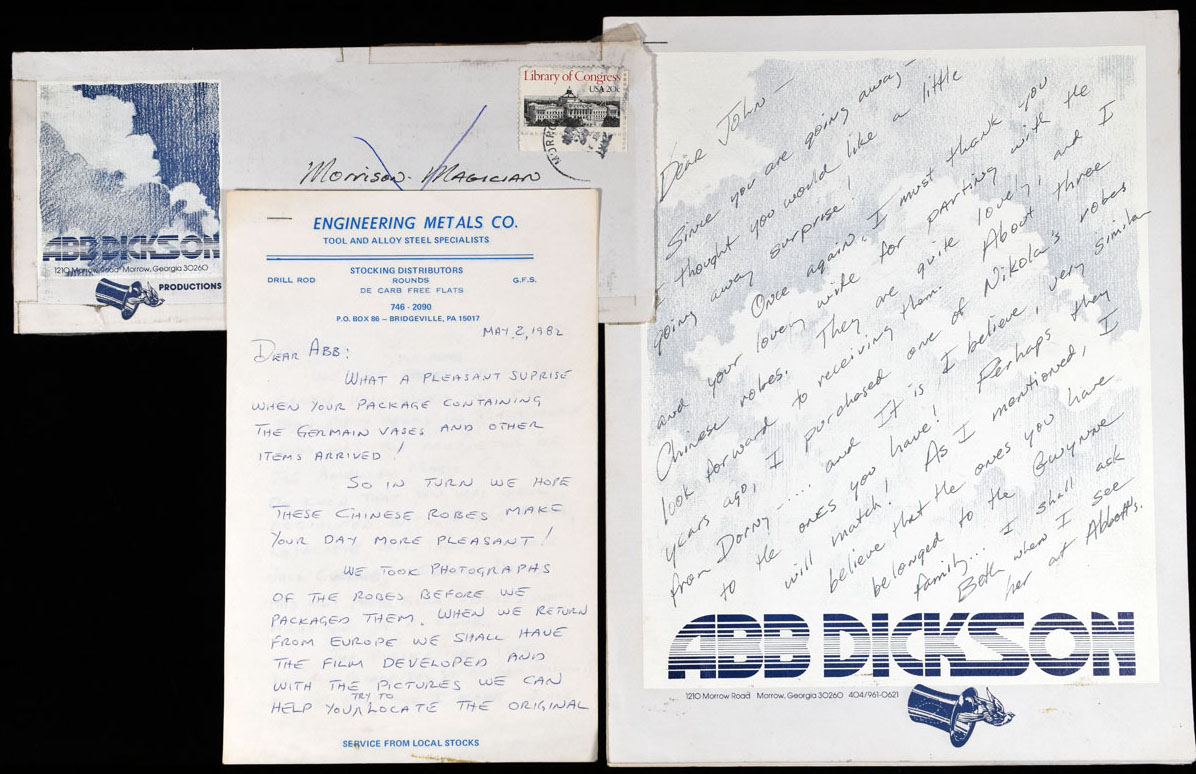 Library of Congress
USA 20c
Morrison - Magician
ABB DICKSON
1210 Morrow Road Morrow, Georgia 30260
PRODUCTIONS
ENGINEERING METALS CO.
TOOL AND ALLOY STEEL SPECIALISTS
STOCKING DISTRIBUTORS
DRILL ROD ROUNDS G.F.S.
DE CARB FREE FLATS
746 - 2090
P.O. BOX 86 – BRIDGEVILLE, PA 15017
MAY 2, 1982
DEAR ABB:
WHAT A PLEASANT SUPRISE
WHEN YOUR PACKAGE CONTAINING
THE GERMAIN VASES AND OTHER
ITEMS ARRIVED!
SO IN TURN WE HOPE
THESE CHINESE ROBES MAKE
YOUR DAY MORE PLEASANT!
WE TOOK PHOTOGRAPHS
OF THE ROBES BEFORE WE
PACKAGED THEM. WHEN WE RETURN
FROM EUROPE WE SHALL HAVE
THE FILM DEVELOPED AND
WITH THE PICTURES WE CAN
TRY TO
HELP YOU LOCATE THE ORIGINAL
SERVICE FROM LOCAL STOCKS
Dear John –
Since you are going away –
I thought you would like a little
going away surprise!
Once again, I must thank you
and your lovely wife for parting with the
Chinese robes. They are quite lovely, and I
look forward to receiving them. About three
years ago, I purchased one of Nikola's robes
from Dorny..... and It is, I believe, very similar
to the ones you have! Perhaps they
will match! As I mentioned, I
believe that the ones you have
belonged to the Gwynne
family... I shall ask
Both when I see
her at Abbotts.
ABB DICKSON
1210 Morrow Road Morrow, Georgia 30260 404/961-0621